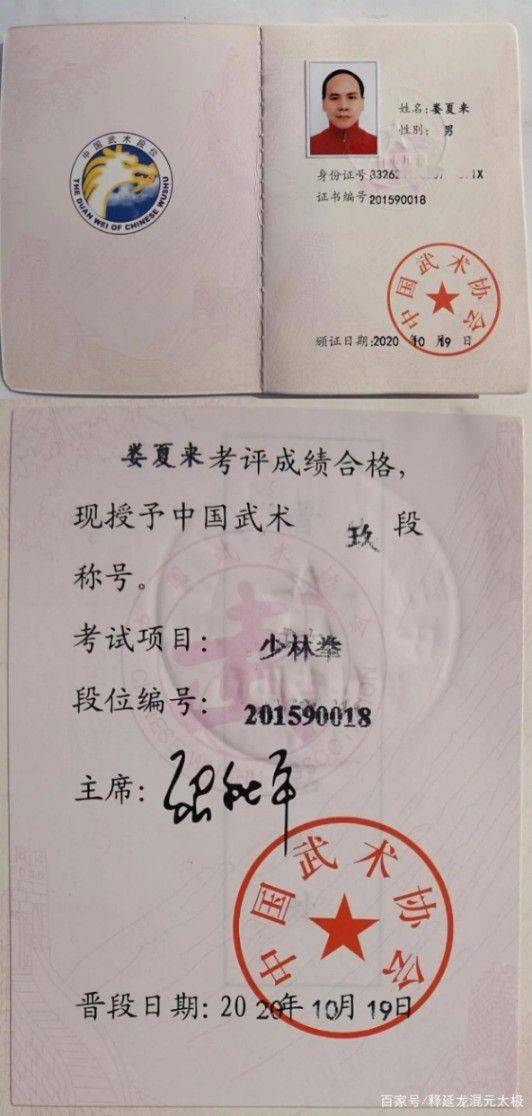 中国武术段位
THE DUAN WEI OF CHINESE WUSHU
姓名：娄夏来
性别：男
身份证号
证书编号 201590018
中国武术协会
颁证日期：2020 年 10 月 19 日
娄夏来考评成绩合格，
现授予中国武术 玖 段
称号。
考试项目： 少林拳
段位编号： 201590018
主席：
中国武术协会
晋段日期：2020年10月19日
百家号/释延龙混元太极